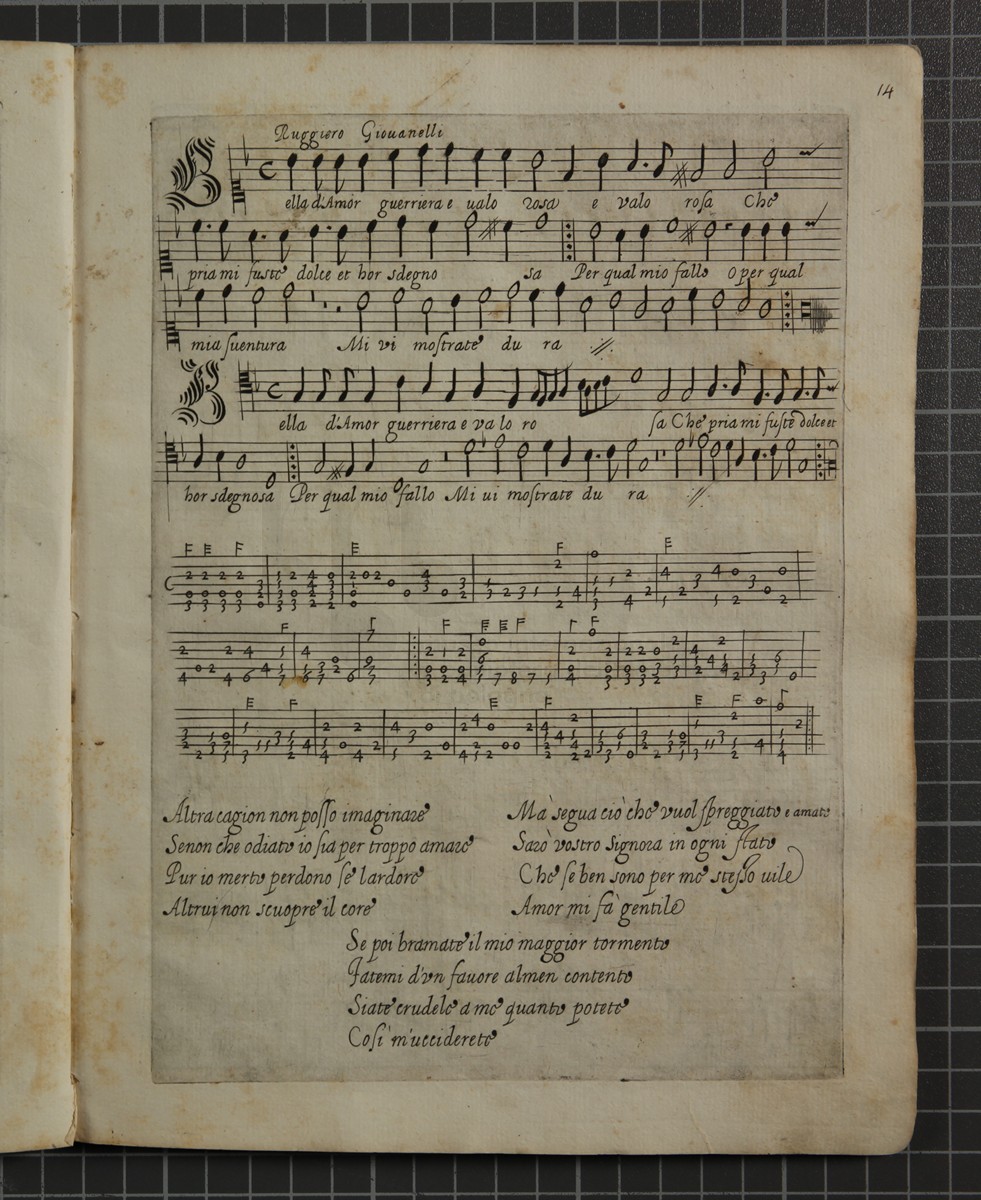 14
Ruggiero Giouanelli
Bella d'Amor guerriera e ualo rosa e valo rosa Che
pria mi fuste dolce et hor sdegno sa Per qual mio fallo o per qual
mia suentura Mi vi mostrate du ra
Bella d'Amor guerriera e va lo ro sa Che pria mi fuste dolce et
hor sdegnosa Per qual mio fallo Mi ui mostrate du ra
Altra cagion non posso imaginare
Senon che odiato io sia per troppo amare
Pur io merto perdono se l'ardore
Altrui non scuopre il core
Mà segua ciò che vuol spreggiato e amato
Sarò vostro Signora in ogni stato
Che se ben sono per me stesso uile
Amor mi fà gentile
Se poi bramate il mio maggior tormento
Fatemi d'vn fauore almen contento
Siate crudele a me quanto potete
Cosi m'ucciderete